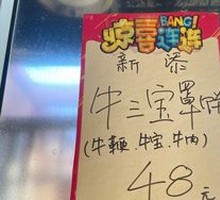 BANG!
惊喜连连
新 添
牛三宝罩饼
(牛鞭、牛宝、牛肉)
48元